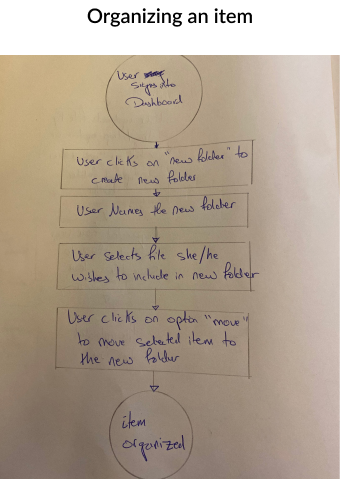 Organizing an item
User
Signs into
Dashboard
User clicks on "new folder" to
create new folder
User Names the new folder
User selects file she/he
wishes to include in new folder
User clicks on option "move"
to move selected item to
the new folder
item
organized